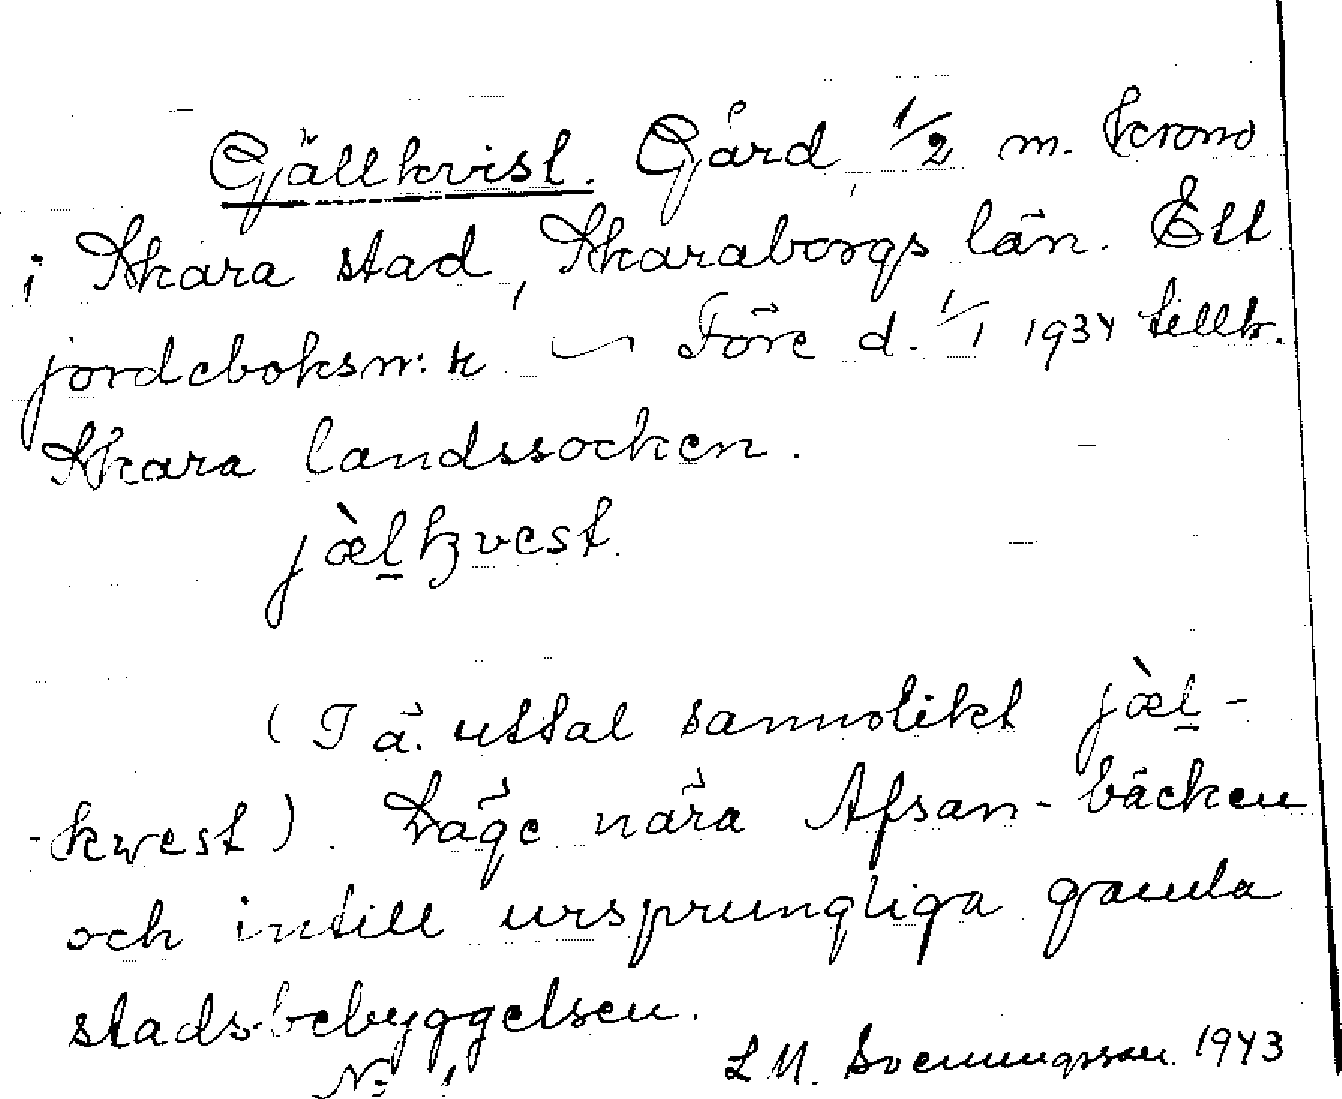 Gjällkvist. Gård, 1/2 m. krono
i Skara stad, Skaraborgs län. Ett
jordeboksnr: k — Före d. 1/1 1934 tillh.
Skara landssocken.
jæ̀ḻkvest.
(I ä. uttal sannolikt jæ̀ḻ-
-kwest). Läge nära Afsan-bäcken
och intill ursprungliga gamla
stadsbebyggelsen.
No 1
L M. Svenungsson 1943